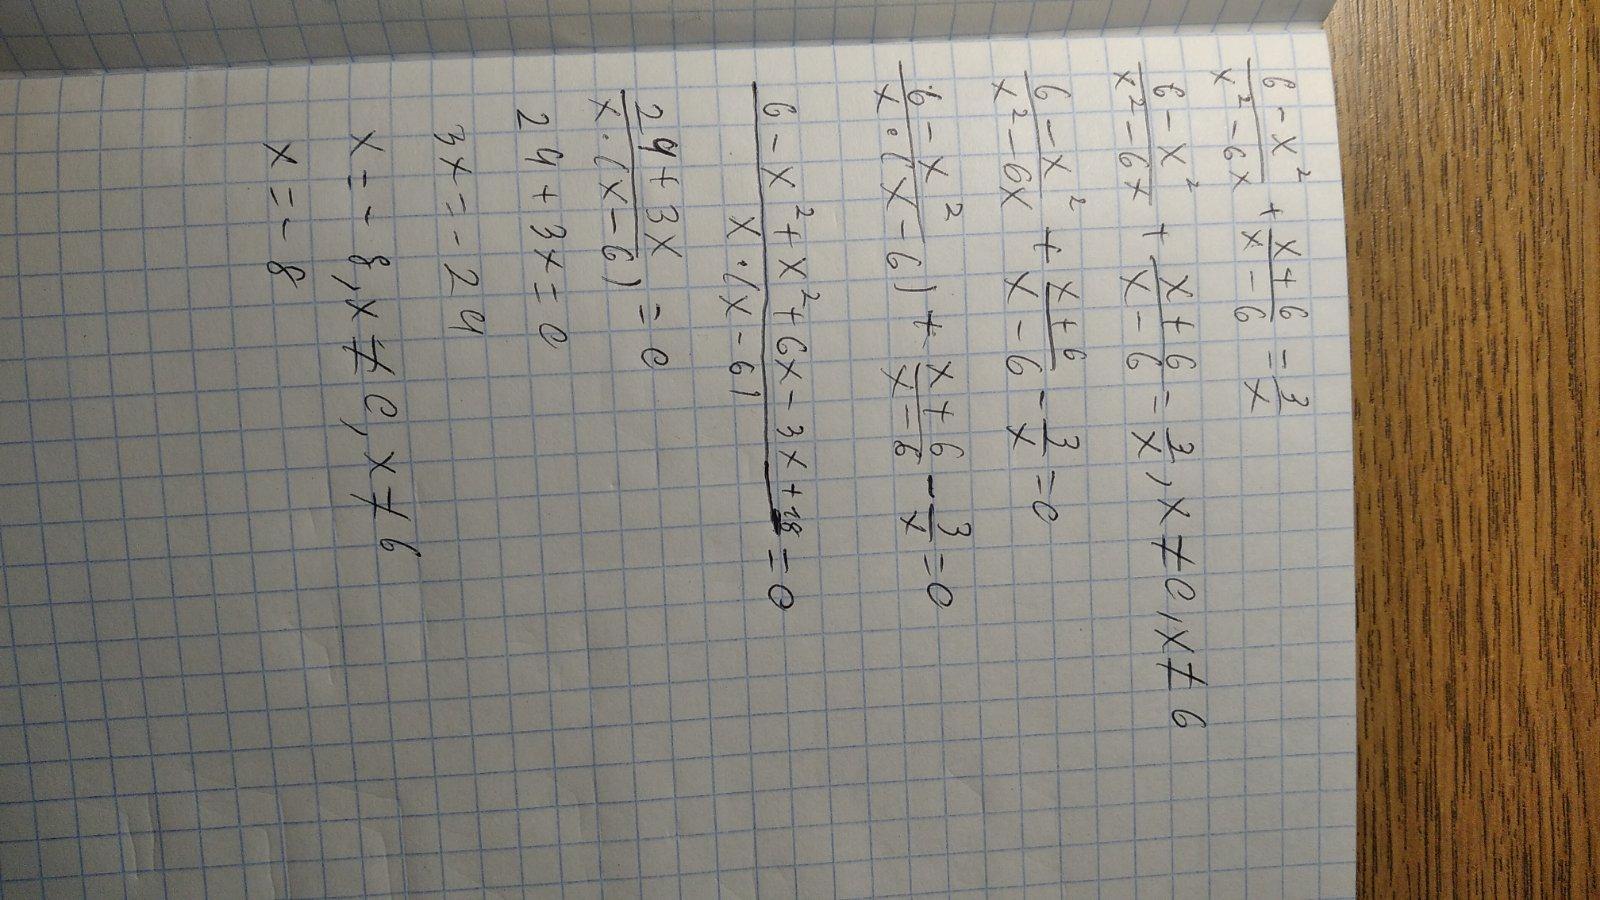 6-x²/x²-6x + x+6/x-6 = 3/x
6-x²/x²-6x + x+6/x-6 = 3/x, x≠0, x≠6
6-x²/x²-6x + x+6/x-6 - 3/x = 0
6-x²/x·(x-6) + x+6/x-6 - 3/x = 0
6-x²+x²+6x-3x+18/x·(x-6) = 0
24+3x/x·(x-6) = 0
24+3x=0
3x=-24
x=-8, x≠0, x≠6
x=-8